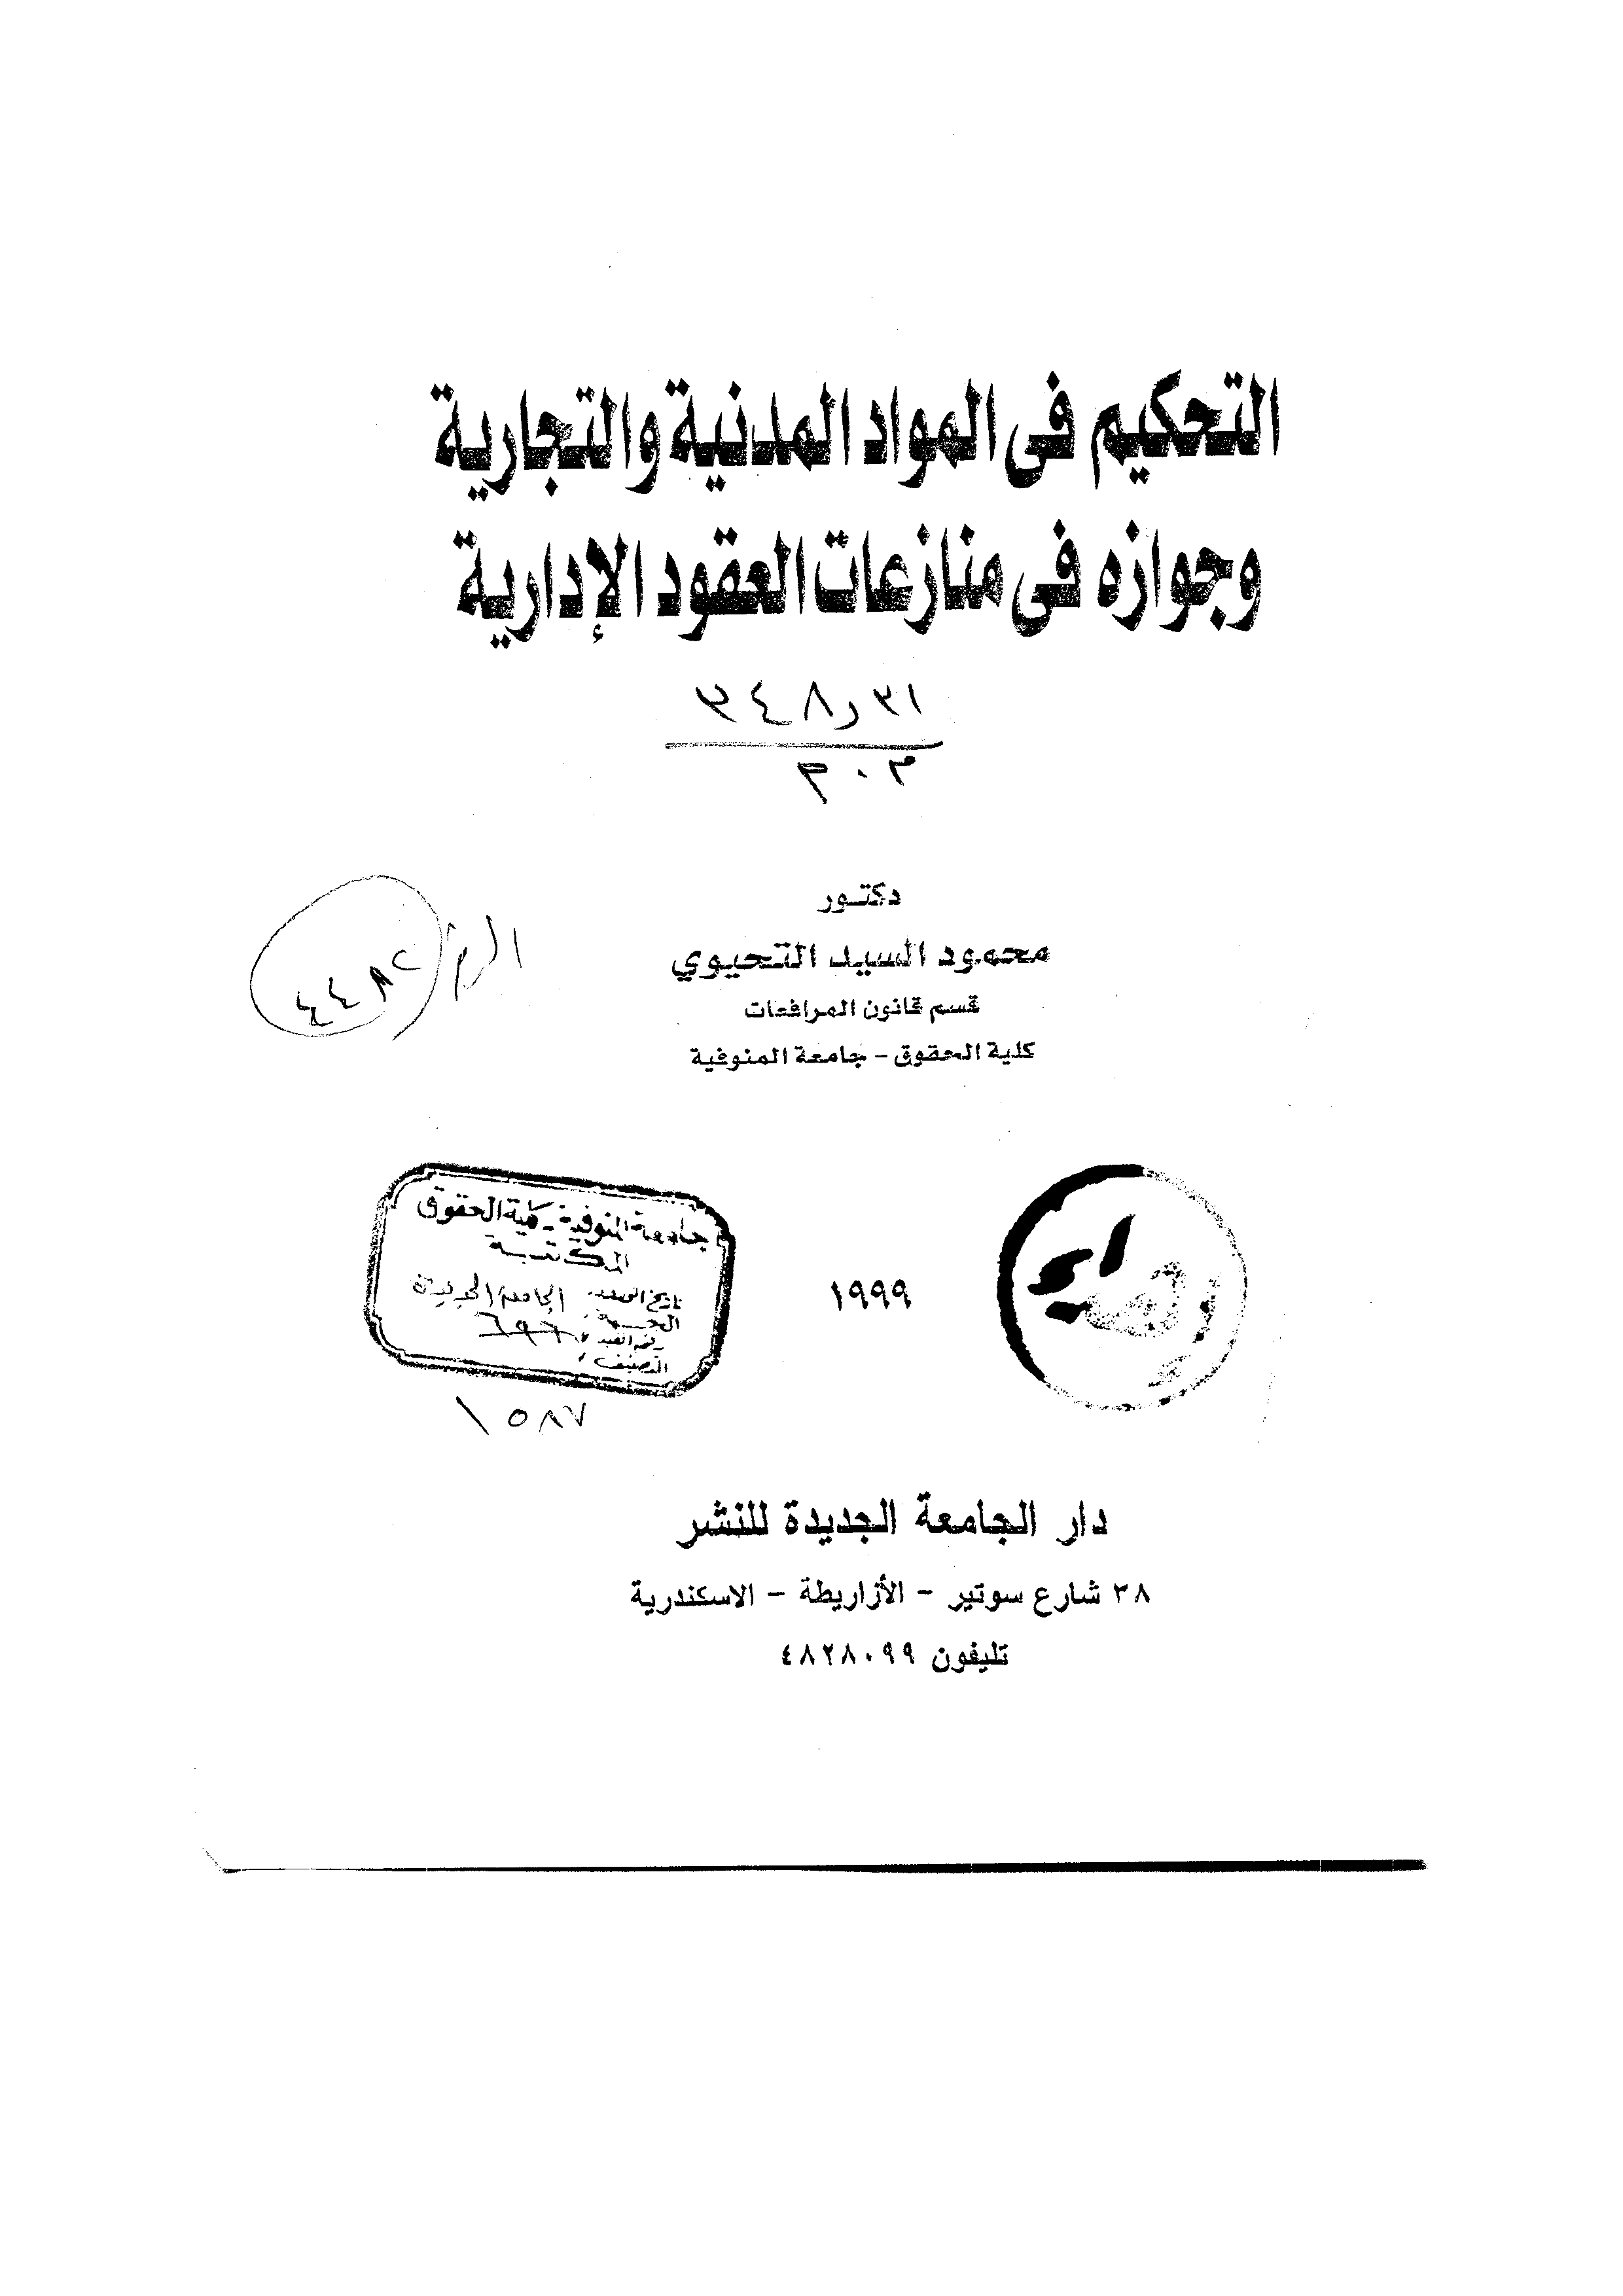 التحكيم فى المواد المدنية والتجارية
وجوازه فى منازعات العقود الإدارية
٣٤٨٫٣١
٣٠٣
دكتور
محمود السيد التحيوي
قسم قانون المرافعات
كلية الحقوق - جامعة المنوفية
٤٤٨٢
جامعة المنوفية - كلية الحقوق
المكتبة
الجامعة الجديدة
رقم القيد
التصنيف
١٥٨٧
١٩٩٩
دار الجامعة الجديدة للنشر
٣٨ شارع سوتير - الأزاريطة - الاسكندرية
تليفون ٤٨٢٨٠٩٩